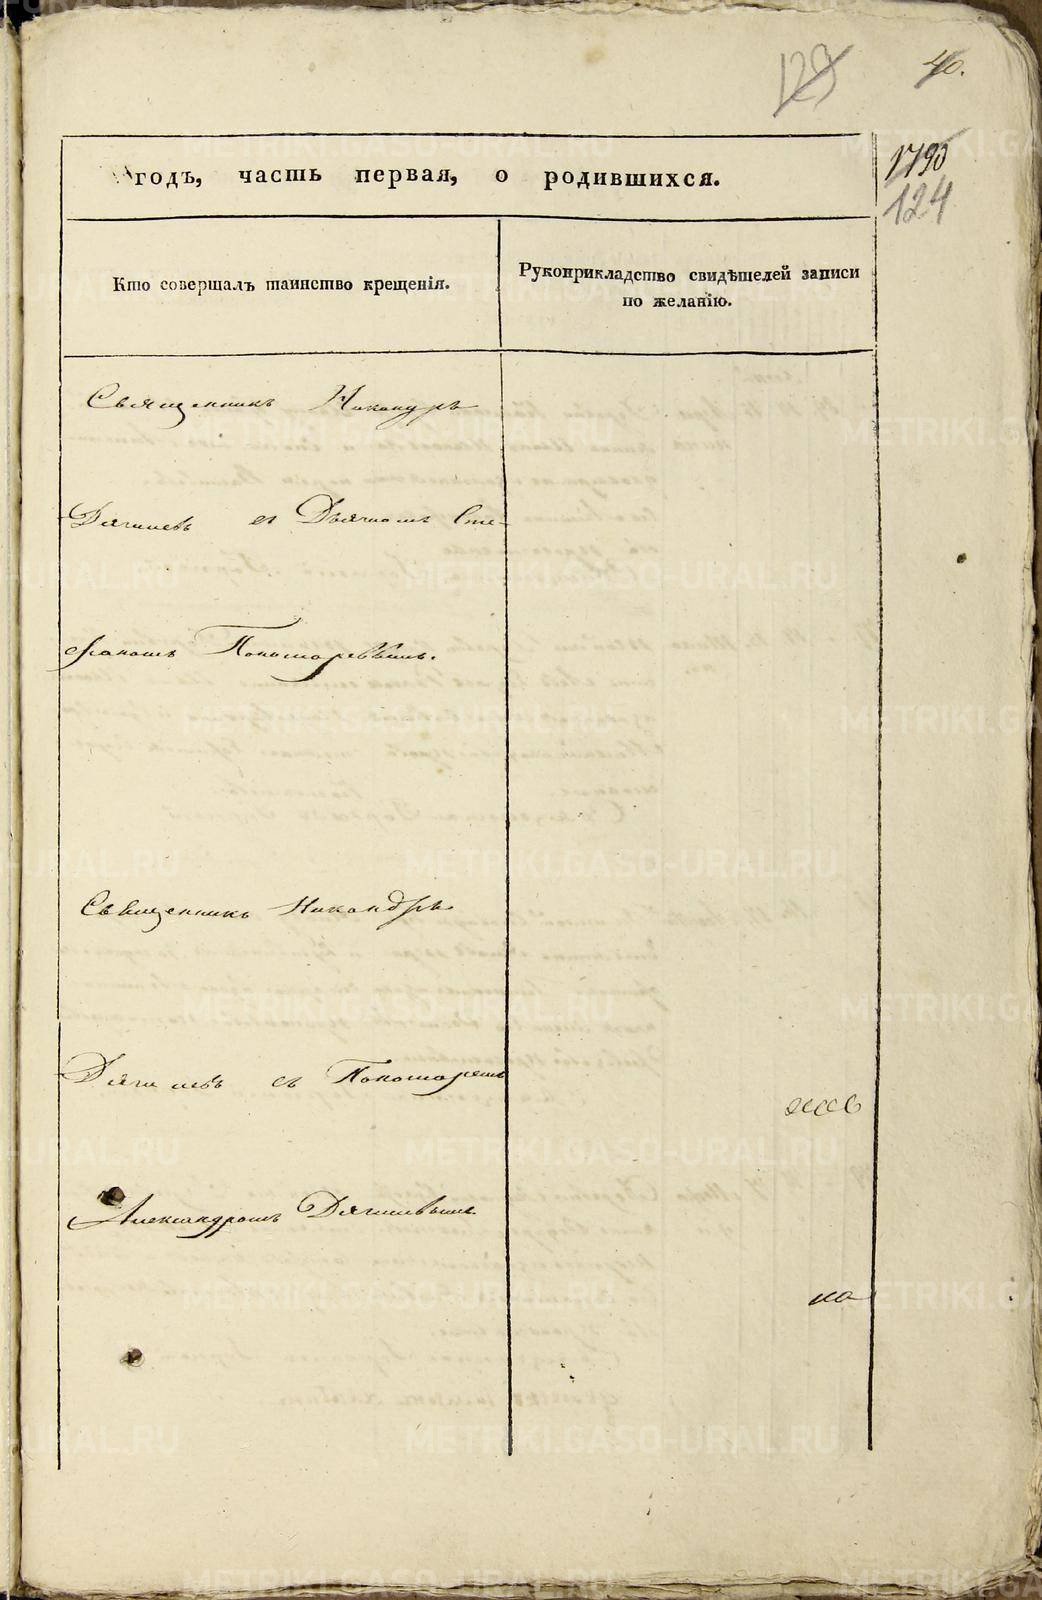 123
40.
1790
124
годъ, часть первая, о родившихся.
Кто совершалъ таинство крещенія.
Рукоприкладство свидѣтелей записи
по желанію.
Священникъ Никандръ
Дягилевъ съ Дьячкомъ Сте-
фаномъ Пономаревымъ.
Священникъ Никандръ
Дягилевъ съ Пономаремъ
Александромъ Дягилевымъ
METRIKI.GASO-URAL.RU